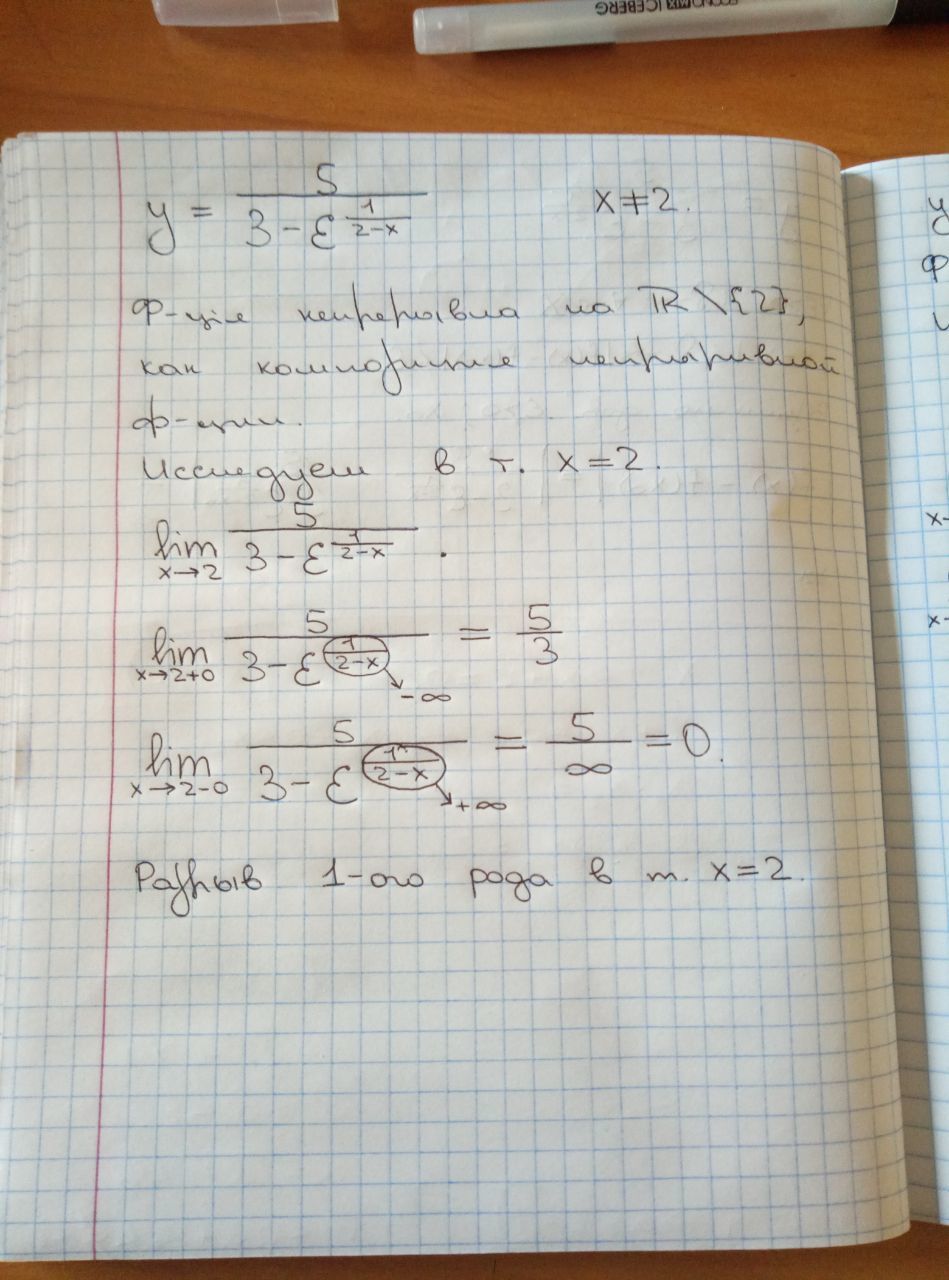 ECONOMIX ICEBERG
y = 5 / (3 - ε^(1/(2-x)))    x ≠ 2.
Ф-ція непрерывна на ℝ \ {2},
как композиция непрырывной
ф-ции.
Исследуем в т. x = 2.
lim x→2 5 / (3 - ε^(1/(2-x))) .
lim x→2+0 5 / (3 - ε^(1/(2-x))) = 5/3
→ -∞
lim x→2-0 5 / (3 - ε^(1/(2-x))) = 5/∞ = 0.
→ +∞
Разрыв 1-ого рода в т. x = 2.
y
Ф
x-
x-